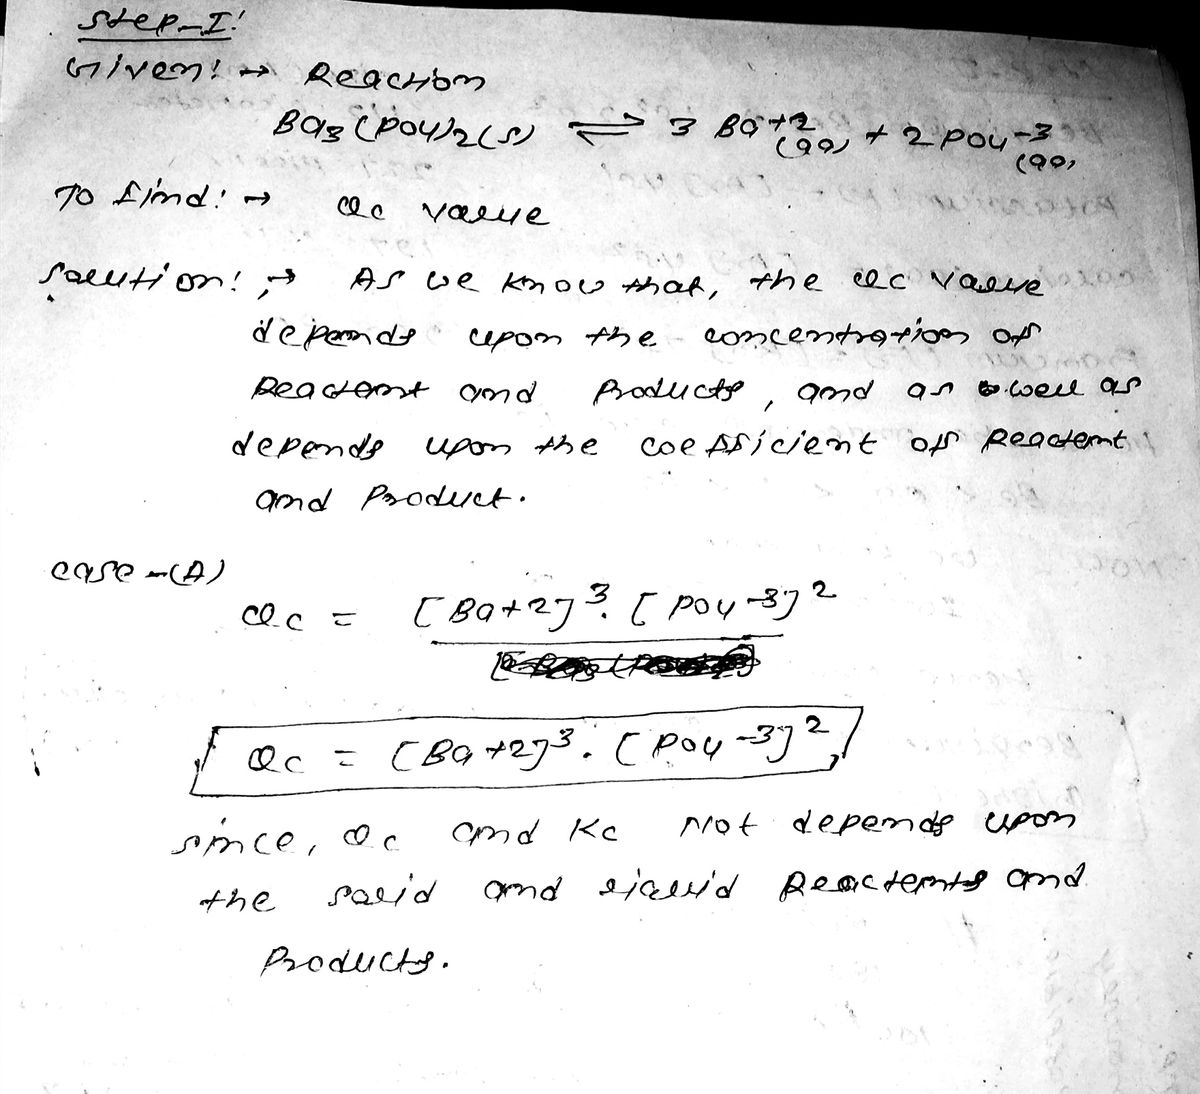 Step-I!
Given! → Reaction
Ba3(PO4)2(s) ⇌ 3 Ba+2(aq) + 2 PO4-3(aq)
To find! → Qc value
Solution! → As we know that, the Qc value
depends upon the concentration of
Reactant and Products, and as well as
depends upon the coefficient of Reactant
and Product.
case-(A)
Qc = [Ba+2]3. [PO4-3]2
Qc = [Ba+2]3. [PO4-3]2
since, Qc and Kc Not depends upon
the solid and liquid Reactents and
Products.